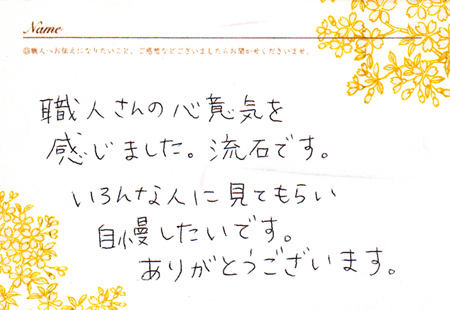 Name
職人へお伝えになりたいこと、ご感想などございましたらお聞かせくださいませ。
職人さんの心意気を
感じました。流石です。
いろんな人に見てもらい
自慢したいです。
ありがとうございます。